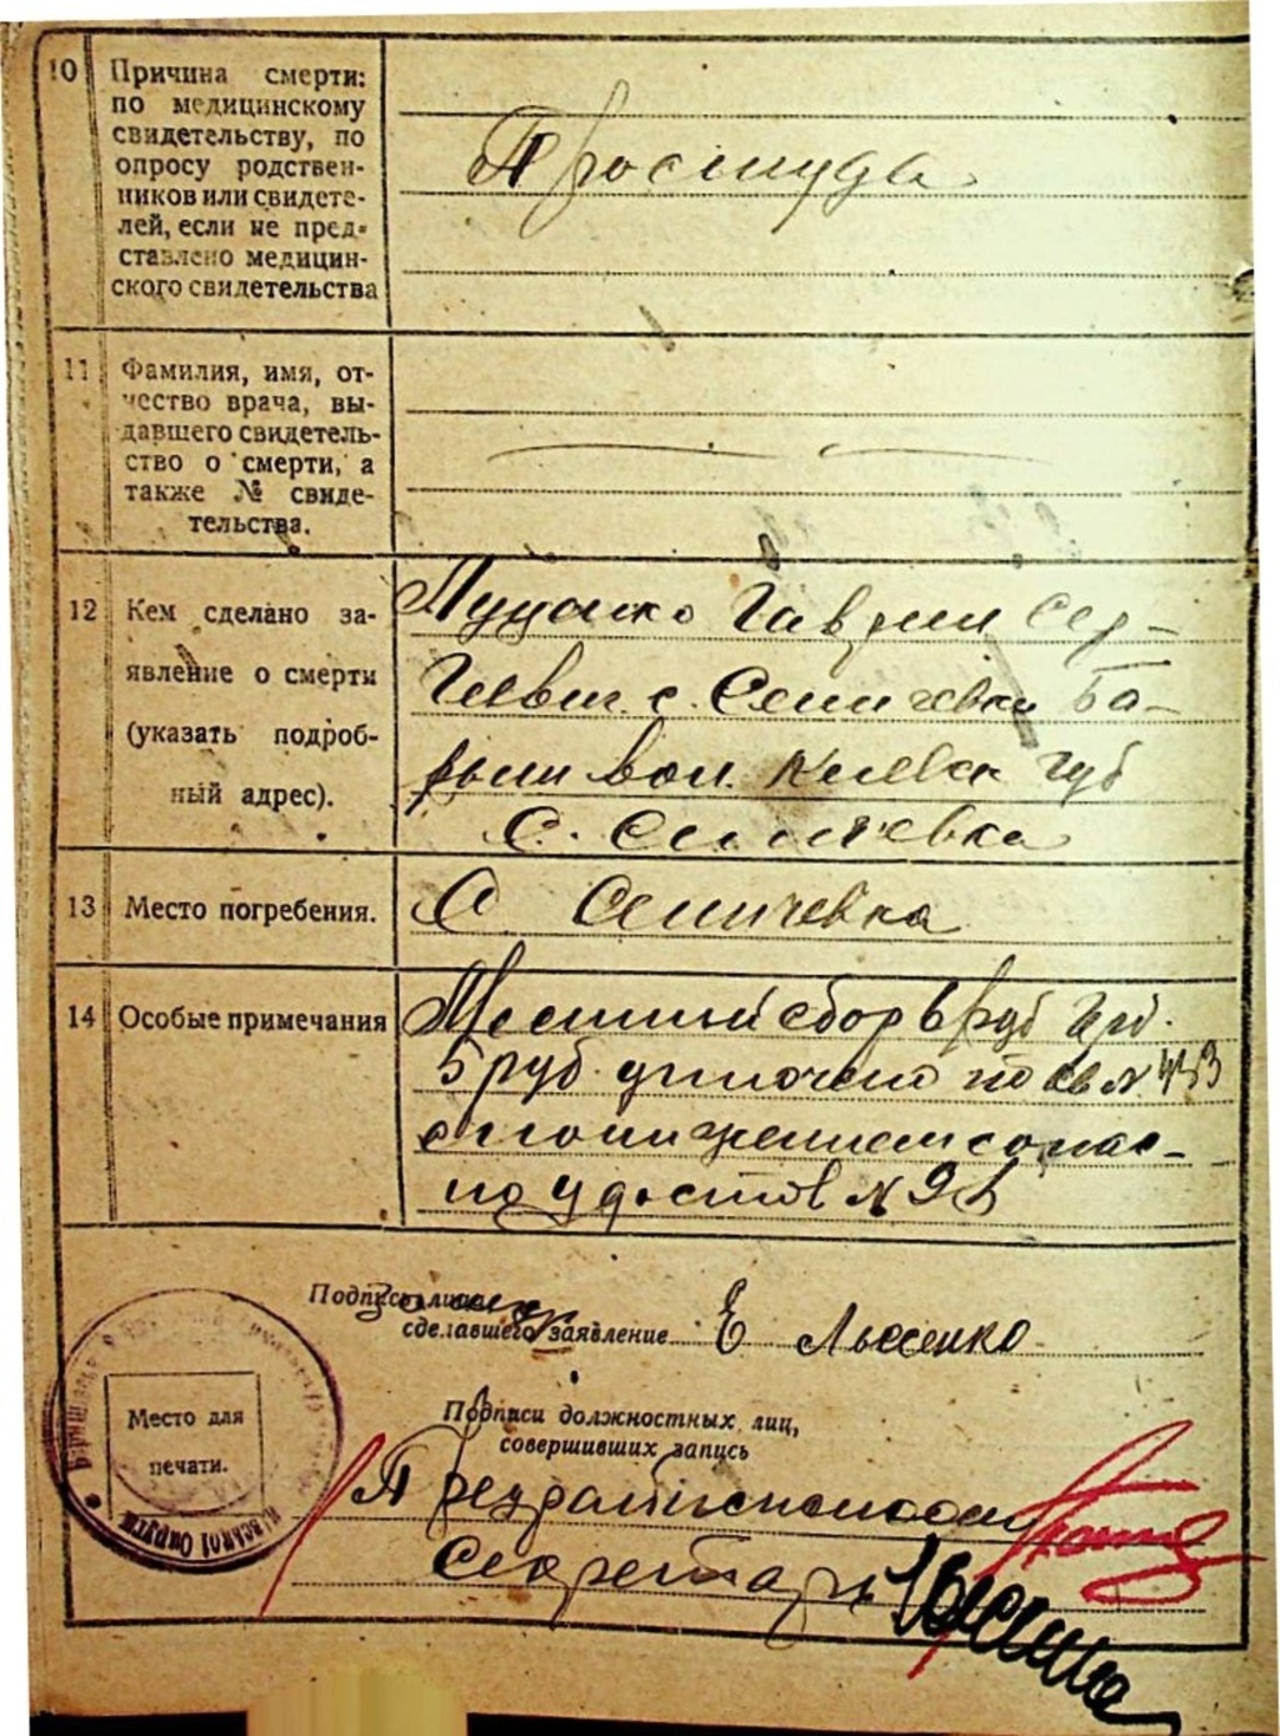 10 Причина смерти:
по медицинскому
свидетельству, по
опросу родствен-
ников или свидете-
лей, если не пред-
ставлено медицин-
ского свидетельства
Простуда
11 Фамилия, имя, от-
чество врача, вы-
давшего свидетель-
ство о смерти, а
также № свиде-
тельства.
12 Кем сделано за-
явление о смерти
(указать подроб-
ный адрес).
Гаврил Сер-
геевич с. Семичевки Ба-
рыш вол. Киевск губ
С. Семичевка
13 Место погребения.
С Семичевка
14 Особые примечания
Местный сбор в руб
5 руб. уплочено по кв №
с понижением соглас-
но удостов №
Подпись лица,
сделавшего заявление Е Лысенко
Место для
печати.
Подписи должностных лиц,
совершивших запись
Секретарь